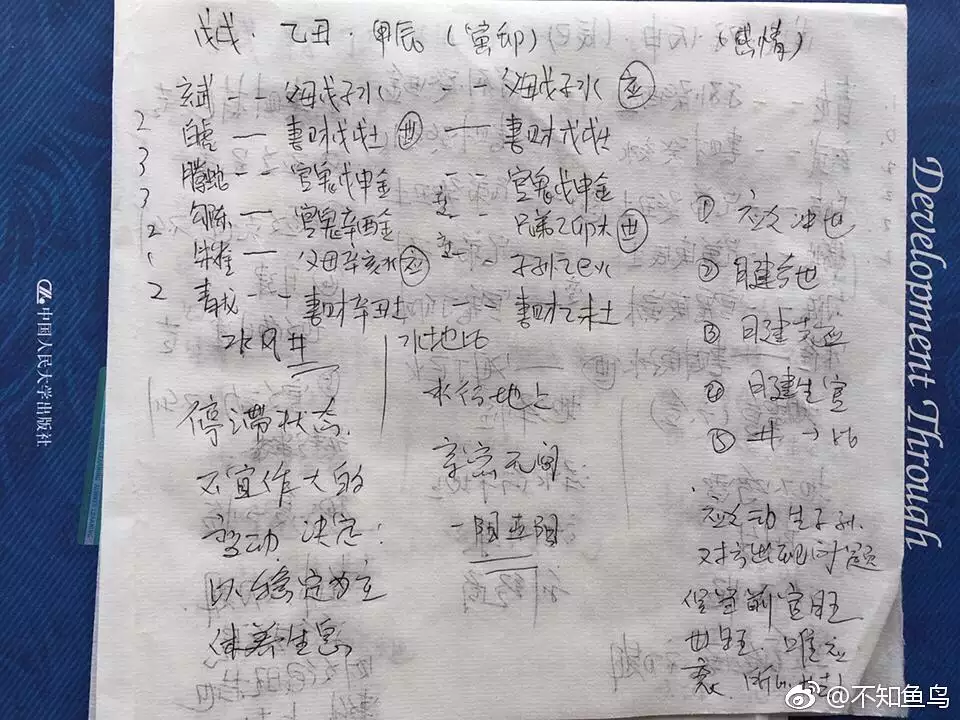 戊戌·乙丑·甲辰（寅卯） （感情）
玄武 -- 父母戊子水 -- 父母戊子水 应
2 白虎 — 妻财戊戌土 世 — 妻财戊戌土
3 腾蛇 -- 官鬼戊申金 -- 官鬼戊申金
3 勾陈 — 官鬼辛酉金 -- 兄弟乙卯木 世
2 朱雀 — 父母辛亥水 应 -- 子孙乙巳火
2 青龙 -- 妻财辛丑土 妻财乙未土
水风井
停滞状态.
不宜作大的
变动 决定:
以稳定为主
休养生息
水地比
水行地上
亲密无间
① 应爻冲世
② 日建合世
③ 月建克应
④ 月建生官
⑤ 井→比
应爻动生子孙.
对方出现问题
官旺
世旺. 唯应
衰.
Development Through
中国人民大学出版社
@不知鱼鸟